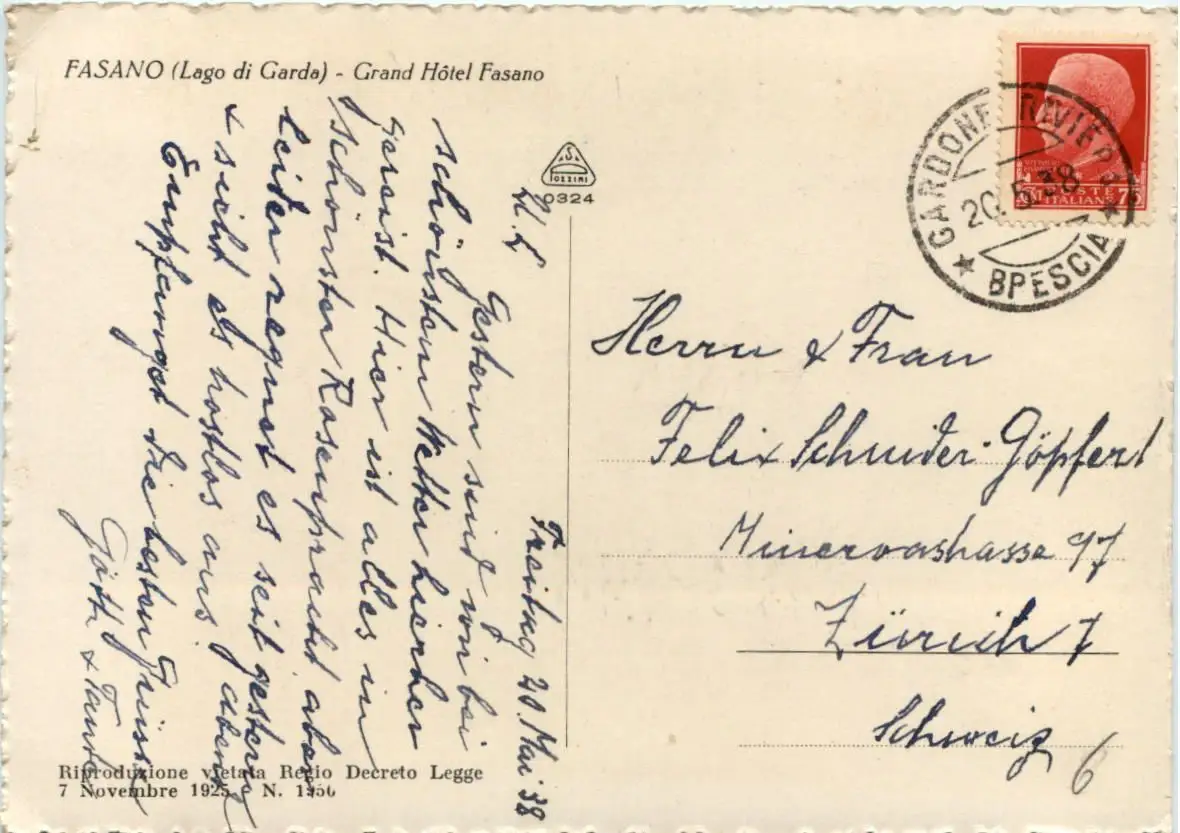 FASANO (Lago di Garda) - Grand Hôtel Fasano
POZZINI
0324
Freitag 20. Mai 38
M. L.
Gestern sind wir bei
schönstem Wetter hierher
gereist. Hier ist alles in
schönster Rosenpracht aber
leider regnet es seit gestern abend
& sieht es trostlos aus.
Empfanget die besten Grüsse
Götti & Tante
Riproduzione vietata Regio Decreto Legge
7 Novembre 1925 N. 1950
GARDONE RIVIERA
20.5.38
BRESCIA
POSTE ITALIANE 75
Herrn & Frau
Felix Schneider-Göpfert
Minervastrasse 97
Zürich 7
Schweiz
6